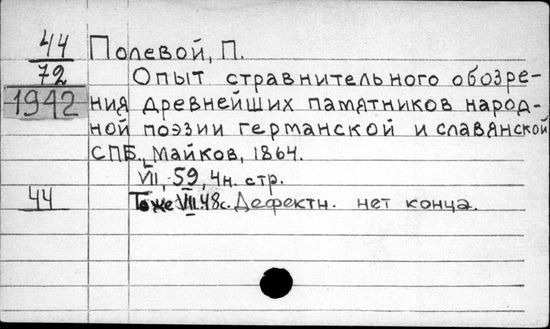 44 Полевой, П.
72 Опыт стравнительного обозре-
1942 ния древнейших памятников народ-
ной поэзии германской и славянской
СПБ., Майков, 1864.
VII, 59, 4н. стр.
44 Тоже VIII 48с. Дефектн. нет конца.